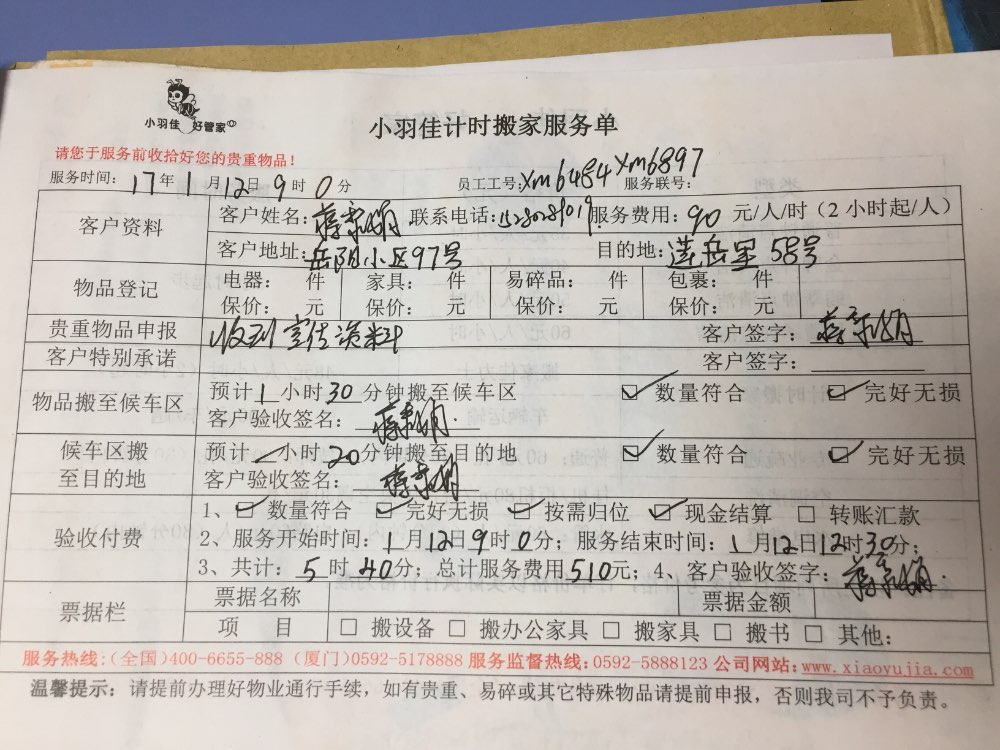 小羽佳 好管家
小羽佳计时搬家服务单
请您于服务前收拾好您的贵重物品！
服务时间：17年1月12日9时0分 员工工号：XM6484 XM6897 服务联号：
客户资料 客户姓名： 联系电话： 服务费用：90元/人/时（2小时起/人）
客户地址：岳阳小区97号 目的地：莲岳里58号
物品登记 电器： 件 家具： 件 易碎品： 件 包裹： 件
保价： 元 保价： 元 保价： 元 保价： 元
贵重物品申报 收到宣传资料 客户签字：
客户特别承诺 客户签字：
物品搬至候车区 预计1小时30分钟搬至候车区 ☑ 数量符合 ☑ 完好无损
客户验收签名：
候车区搬至目的地 预计/小时20分钟搬至目的地 ☑ 数量符合 ☑ 完好无损
客户验收签名：
验收付费 1、☑ 数量符合 ☑ 完好无损 ☑ 按需归位 ☑ 现金结算 □ 转账汇款
2、服务开始时间：1月12日9时0分；服务结束时间：1月12日12时30分；
3、共计：5时40分；总计服务费用510元；4、客户验收签字：
票据栏 票据名称 票据金额
项 目 □ 搬设备 □ 搬办公家具 □ 搬家具 □ 搬书 □ 其他：
服务热线：（全国）400-6655-888（厦门）0592-5178888 服务监督热线：0592-5888123 公司网站：www.xiaoyujia.com
温馨提示：请提前办理好物业通行手续，如有贵重、易碎或其它特殊物品请提前申报，否则我司不予负责。